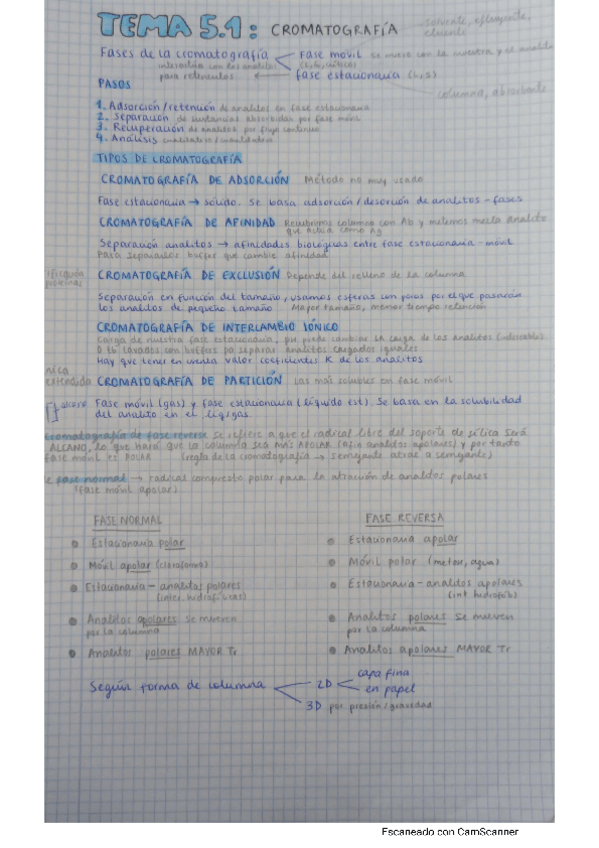 TEMA 5.1: CROMATOGRAFÍA
solvente, efluyente,
eluente
Fases de la cromatografía
Fase móvil se mueve con la muestra y el analito
interacción con los analitos
para retenerlos
fase estacionaria (L,S)
columna, absorbente
PASOS
1. Adsorción/retención de analitos en fase estacionaria
2. Separación de sustancias absorbidas por fase móvil
3. Recuperación de analitos por flujo continuo
4. Análisis cualitativo/cuantitativo
TIPOS DE CROMATOGRAFÍA
CROMATOGRAFÍA DE ADSORCIÓN Método no muy usado
Fase estacionaria → sólido. Se basa adsorción/desorción de analitos - fases
CROMATOGRAFÍA DE AFINIDAD Recubrimos columna con Ab y metemos mezcla analito
que actúa como Ag
Separación analitos → afinidades biológicas entre fase estacionaria - móvil
Para separarlos buffer que cambie afinidad
proteínas
CROMATOGRAFÍA DE EXCLUSIÓN Depende del relleno de la columna
Separación en función del tamaño, usamos esferas con poros por el que pasarán
los analitos de pequeño tamaño Mayor tamaño, menor tiempo retención
CROMATOGRAFÍA DE INTERCAMBIO IÓNICO
Carga de nuestra fase estacionaria, ph puede cambiar la carga de los analitos (indeseable)
lavados con buffers pa separar analitos cargados iguales
Hay que tener en cuenta valor coeficientes K de los analitos
CROMATOGRAFÍA DE PARTICIÓN Las más solubles en fase móvil
Fase móvil (gas) y fase estacionaria (líquido est). Se basa en la solubilidad
del analito en el líq/gas.
cromatografía de fase reversa se refiere a que el radical libre del soporte de sílica será
ALCANO, lo que hará que la columna sea más APOLAR (afín analitos apolares) y por tanto
fase móvil es POLAR (regla de la cromatografía → semejante atrae a semejante)
fase normal → radical compuesto polar para la atracción de analitos polares
(fase móvil apolar)
FASE NORMAL
● Estacionaria polar
● Móvil apolar (cloroformo)
● Estacionaria - analitos polares
(inter. hidrofílicas)
● Analitos apolares se mueven
por la columna
● Analitos polares MAYOR Tr
FASE REVERSA
● Estacionaria apolar
● Móvil polar (metanol, agua)
● Estacionaria - analitos apolares
(int. hidrofób)
● Analitos polares se mueven
por la columna
● Analitos apolares MAYOR Tr
Según forma de columna
2D
capa fina
en papel
3D por presión/gravedad
Escaneado con CamScanner